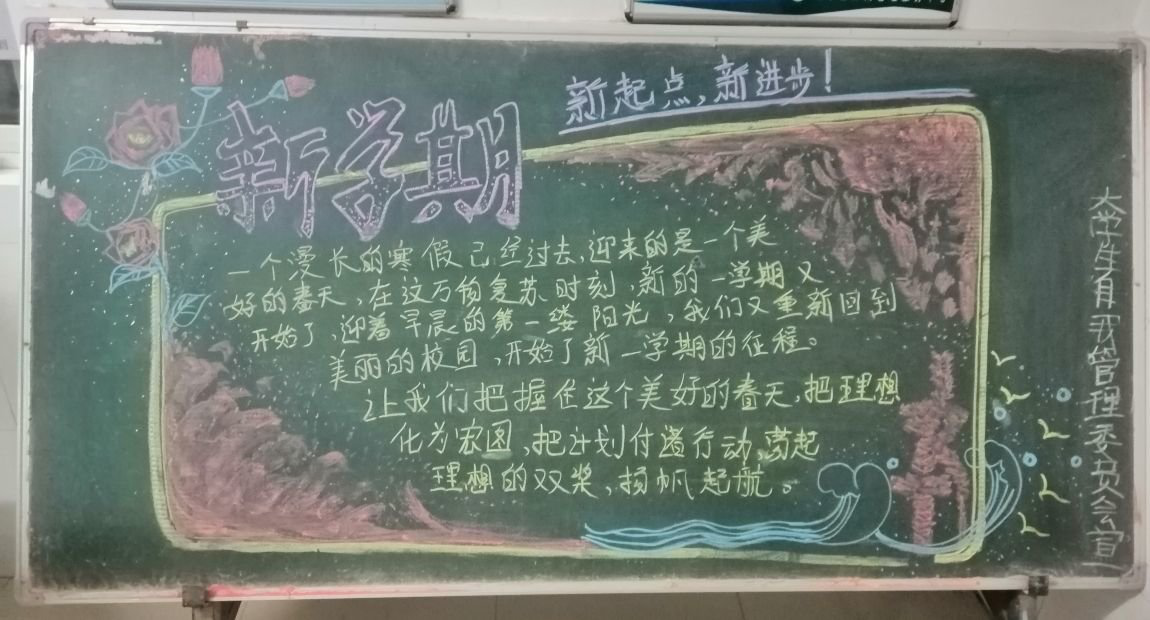 新起点,新进步!
新学期
一个漫长的寒假已经过去,迎来的是一个美
好的春天,在这万物复苏时刻,新的一学期又
开始了,迎着早晨的第一缕阳光,我们又重新回到
美丽的校园,开始了新一学期的征程。
让我们把握住这个美好的春天,把理想
化为宏图,把计划付诸行动,荡起
理想的双桨,扬帆起航。
大学生自我管理委员会宣